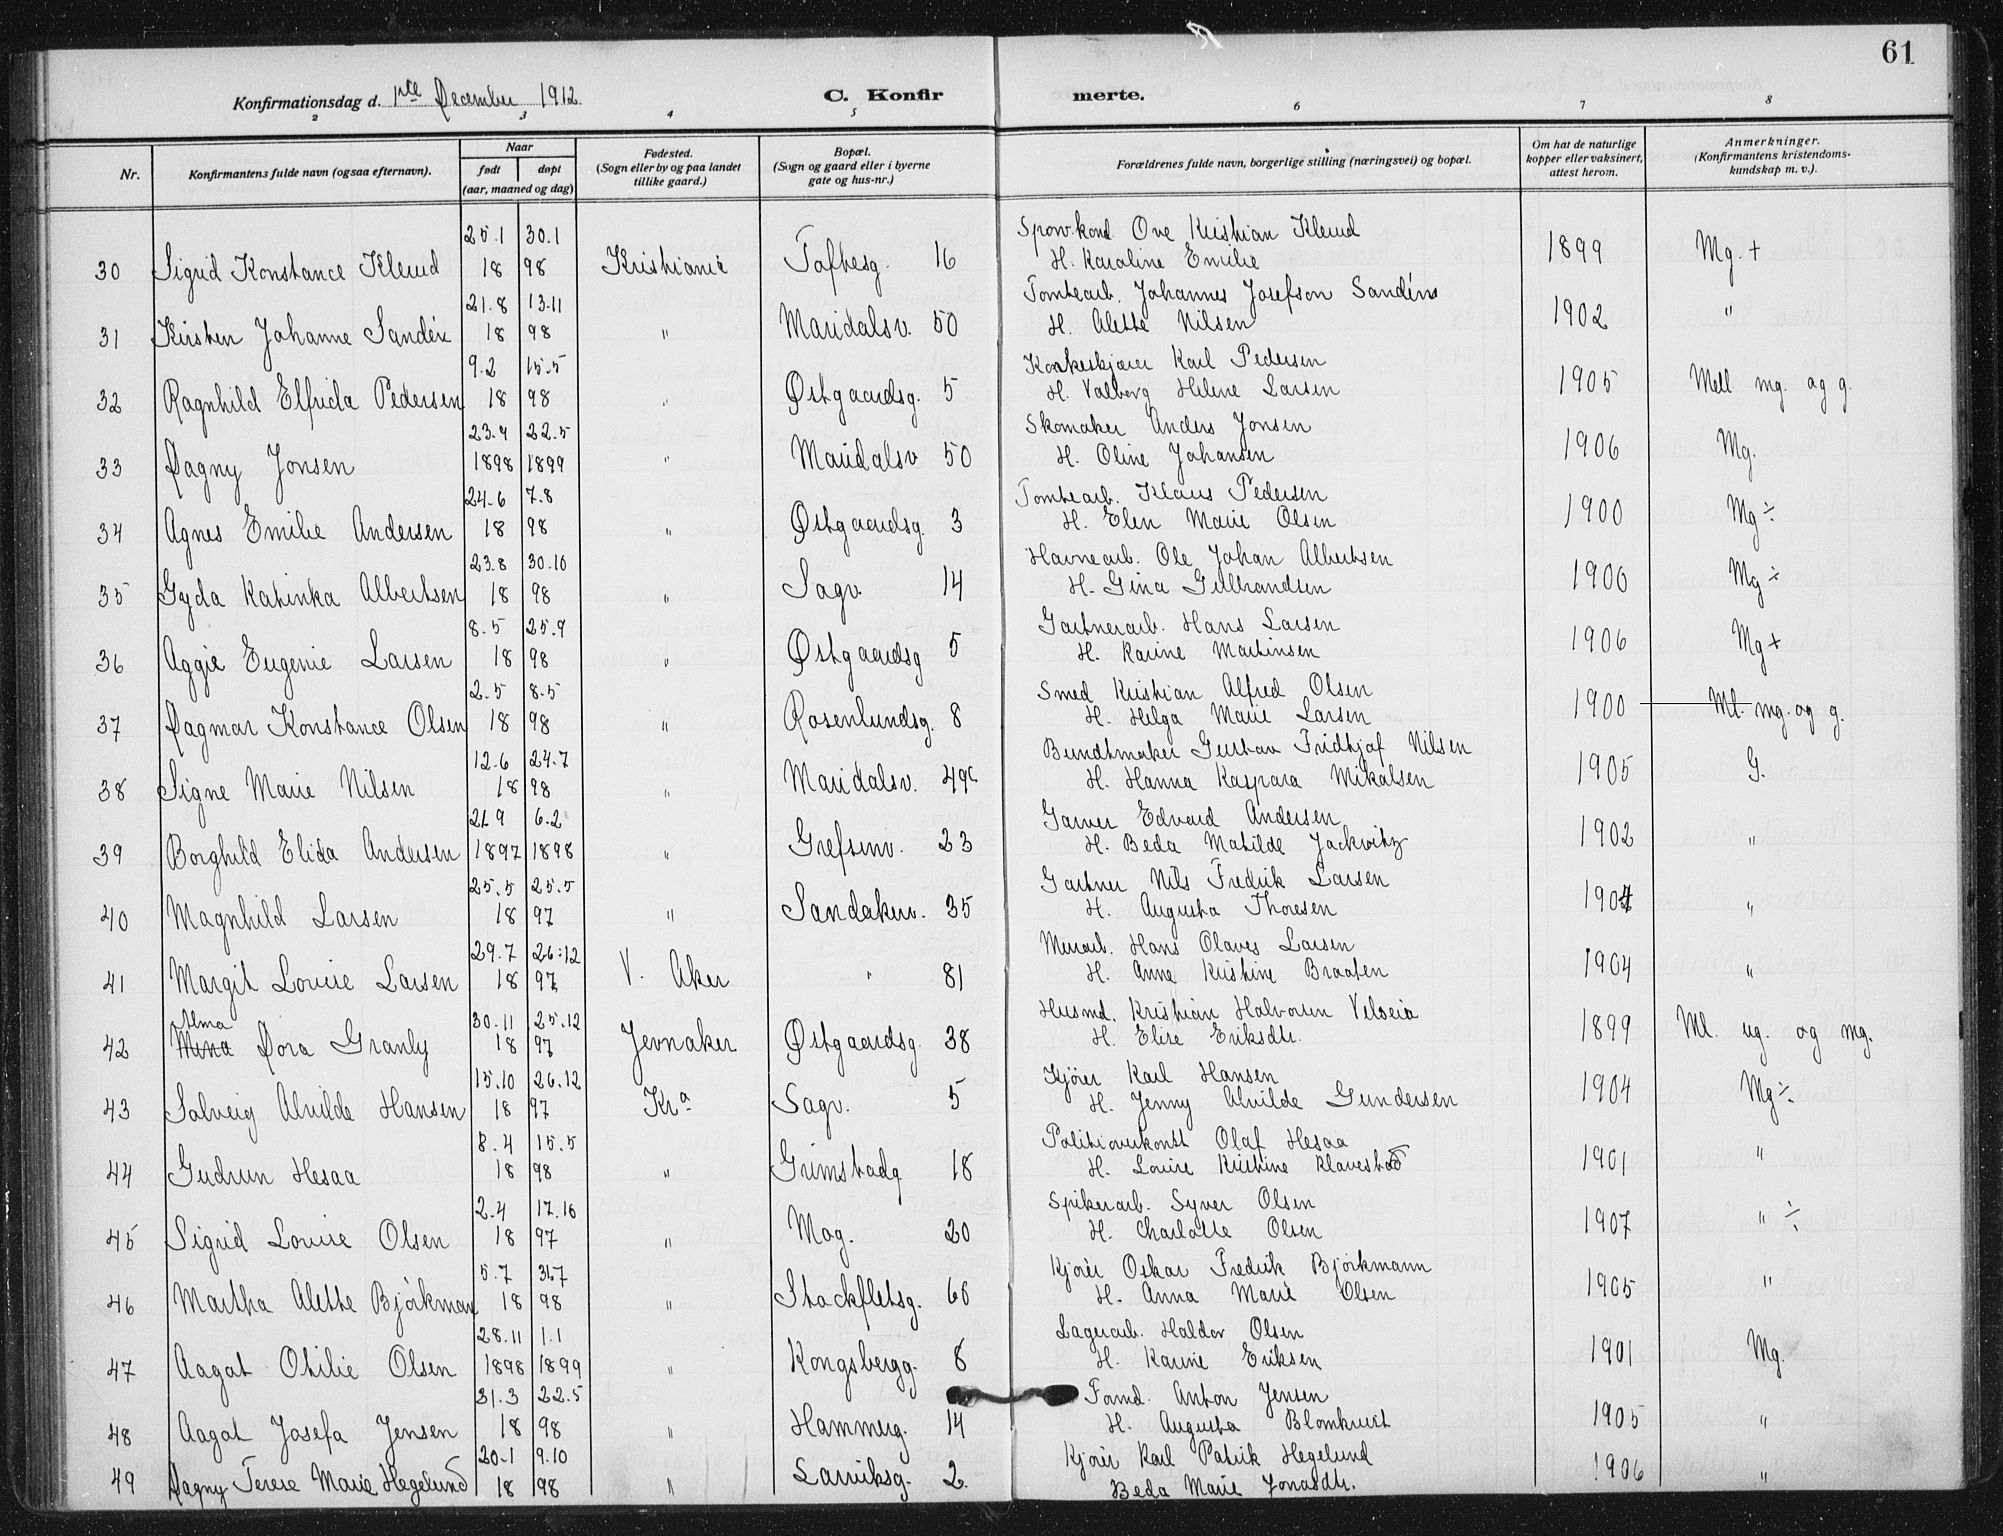 61
Konfirmationsdag d. 1ste December 1912. C. Konfirmerte.
2 3 4 5 6 7 8
Nr. Konfirmantens fulde navn (ogsaa efternavn). Naar født døpt (aar, maaned og dag) Fødested. (Sogn eller by og paa landet tillike gaard.) Bopæl. (Sogn og gaard eller i byerne gate og hus-nr.) Forældrenes fulde navn, borgerlige stilling (næringsvei) og bopæl. Om hat de naturlige kopper eller vaksinert, attest herom. Anmerkninger. (Konfirmantens kristendoms-kundskap m. v.).
25.1 30.1 Sporvkond. Ove Kristian Klerud
30 Sigrid Konstance Klerud 18 98 Kristiania Toftesg. 16 H. Karoline Emilie 1899 Mg. +
21.8 13.11 Tomtearb. Johannes Josefson Sandén
31 Kirsten Johanne Sandén 18 98 " Maridalsv. 50 H. Alette Nilsen 1902 "
9.2 15.5 Karl Pedersen
32 Ragnhild Elfrida Pedersen 18 98 " Østgaardsg. 5 H. Valborg Helene Larsen 1905 Mell mg. og g.
23.9 22.5 Skomaker Anders Jonsen
33 Dagny Jonsen 1898 1899 " Maridalsv 50 H. Oline Johansen 1906 Mg.
24.6 7.8 Tomtearb. Klaus Pedersen
34 Agnes Emilie Andersen 18 98 " Østgaardsg. 3 H. Elen Marie Olsen 1900 Mg ÷
23.8 30.10 Havnearb. Ole Johan Albertsen
35 Gyda Katinka Albertsen 18 98 " Sagv. 14 H. Gina Gulbrandsen 1900 Mg ÷
8.5 25.9 Gartnerarb. Hans Larsen
36 Aggie Eugenie Larsen 18 98 " Østgaardsg 5 H. Karine Martinsen 1906 Mg +
2.5 8.5 Smed Kristian Alfred Olsen
37 Dagmar Konstance Olsen 18 98 " Rosenlundsg. 8 H. Helga Marie Larsen 1900 Ml. mg. og g.
12.6 24.7 Bundtmaker Gustav Fridtjof Nilsen
38 Signe Marie Nilsen 18 98 " Maridalsv. 49c H. Hanna Kaspara Mikalsen 1905 G.
21.9 6.2 Garver Edvard Andersen
39 Borghild Elida Andersen 1897 1898 " Grefsenv. 23 H. Beda Matilde Jackwitz 1902 "
25.5 25.5 Gartner Nils Fredrik Larsen
40 Magnhild Larsen 18 97 " Sandakerv. 35 H. Augusta Thoresen "
29.7 26.12 Murarb. Hans Olaves Larsen
41 Margit Louise Larsen 18 97 V. Aker " 81 H. Anne Kristine Braaten 1904 "
Alma 30.11 25.12 Husmd. Kristian Halvorsen Velseia
42 Mina Dora Granly 18 97 Jevnaker Østgaardsg. 38 H. Elise Eriksdtr. 1899 Ml. ug. og mg.
15.10 26.12 Kjører Karl Hansen
43 Solveig Alvilde Hansen 18 97 Kra Sagv. 5 H. Jenny Alvilde Gundersen 1904 Mg ÷
8.4 15.5 Politioverkonst Olaf Hesaa
44 Gudrun Hesaa 18 98 " Grimstadg. 18 H. Louise Kristine Klavestad 1901 "
2.4 17.10 Spikerarb. Syver Olsen
45 Sigrid Louise Olsen 18 97 " Mog. 20 H. Charlotte Olsen 1907 " ÷
5.7 31.7 Kjører Oskar Fredrik Bjørkmann
46 Martha Alette Bjørkman 18 98 " Stockfletsg. 60 H. Anna Marie Olsen 1905 "
28.11 1.1 Lagerarb. Haldor Olsen
47 Aagot Otilie Olsen 1898 1899 " Kongsbergg. 8 H. Karine Eriksen 1901 Mg.
31.3 22.5 Formd. Anton Jensen
48 Aagot Josefa Jensen 18 98 " Hammerg. 14 H. Augusta Blomkvist 1905 "
20.1 9.10 Kjører Karl Patrik Hegelund
49 Dagny Terese Marie Hegelund 18 98 " Larviksg. 2 Beda Marie Jonasdtr. 1906 "